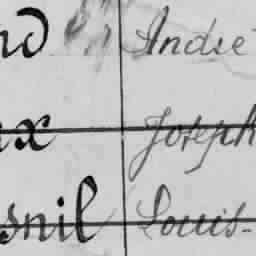 nd André
ux Joseph
snil Louis-